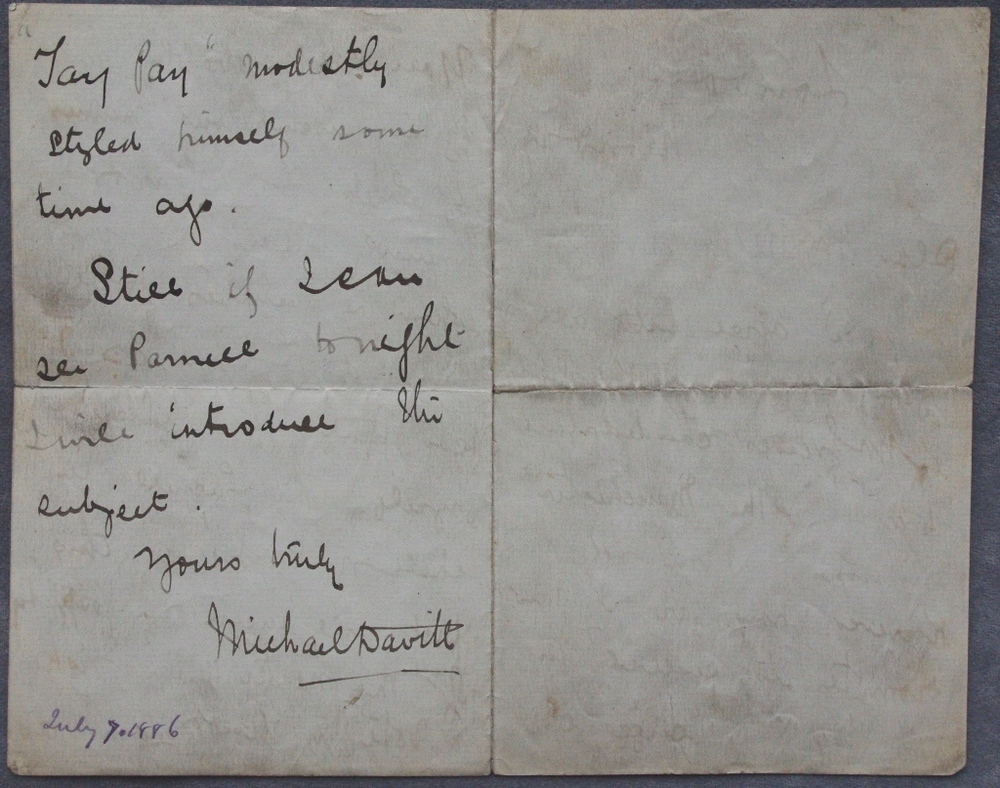 Tay Pay" modestly
styled himself some
time ago.
Still if I can
see Parnell tonight
I will introduce the
subject.
Yours truly
Michael Davitt
July 7. 1886